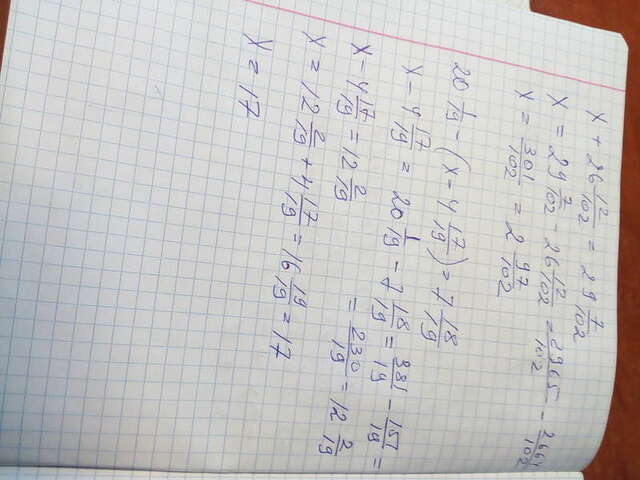 x + 26 12/102 = 29 7/102
x = 29 7/102 - 26 12/102 = 2965/102 - 2664/102
x = 301/102 = 2 97/102
20 1/19 - (x - 4 17/19) = 7 18/19
x - 4 17/19 = 20 1/19 - 7 18/19 = 381/19 - 151/19 =
= 230/19 = 12 2/19
x - 4 17/19 = 12 2/19
x = 12 2/19 + 4 17/19 = 16 19/19 = 17
x = 17